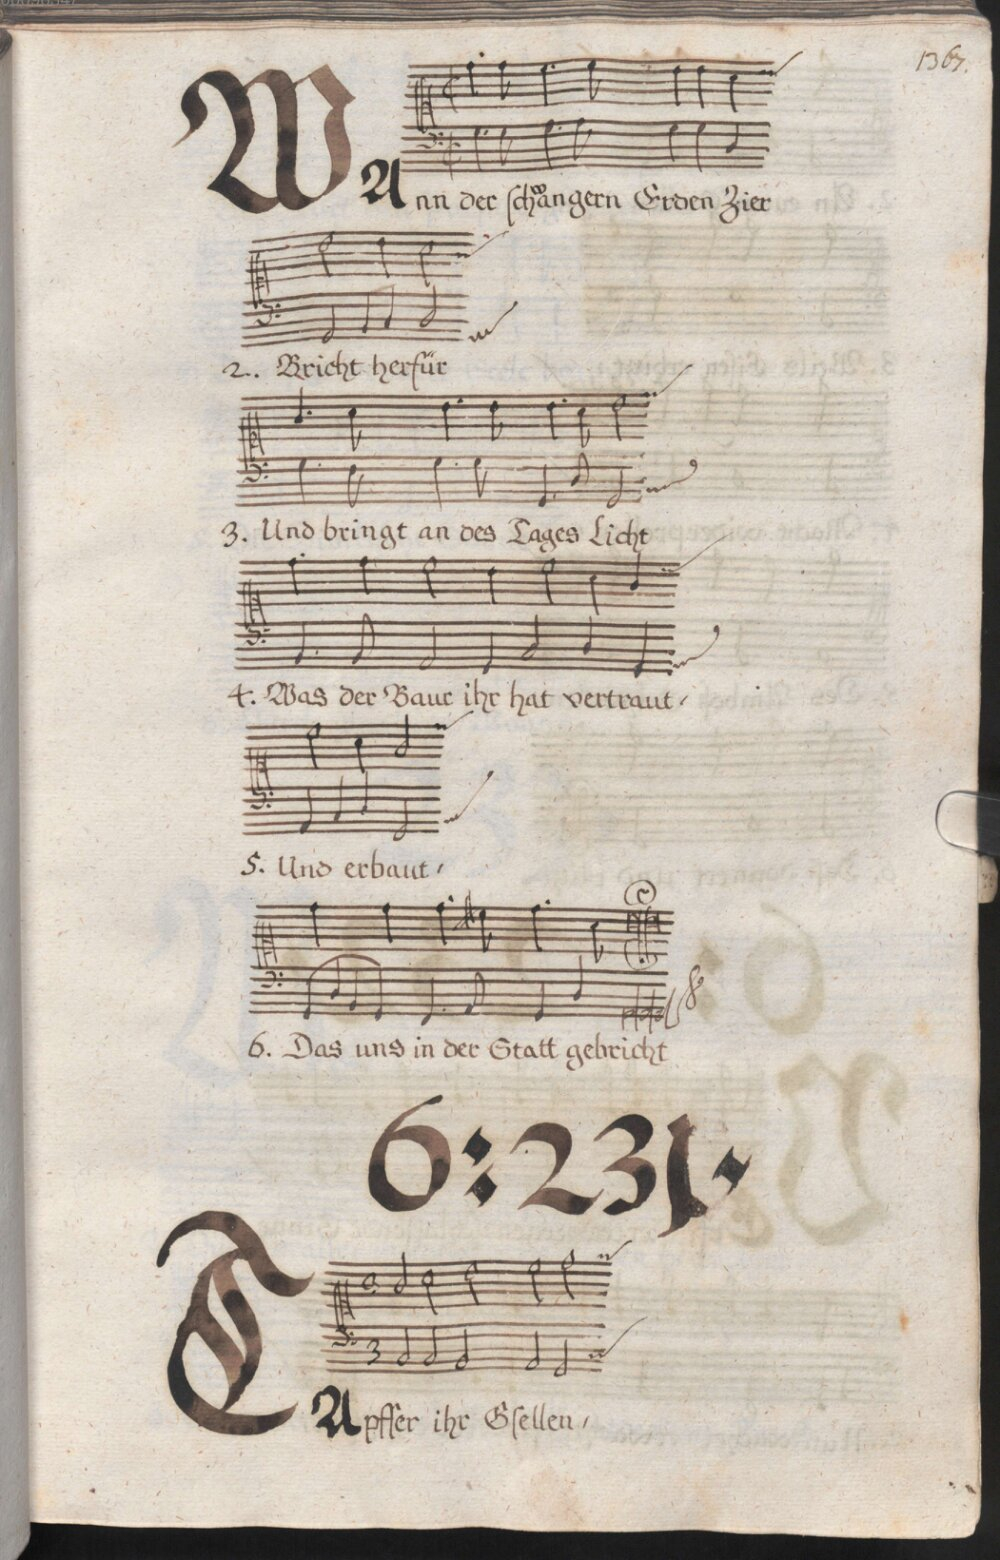 1367.
WAnn der schwangern Erden Zier
2. Bricht herfür
3. Und bringt an des Tages Licht
4. Was der Baur ihr hat vertraut,
5. Und erbaut,
6. Das uns in der Statt gebricht
6:231.
TApffer ihr Gsellen,